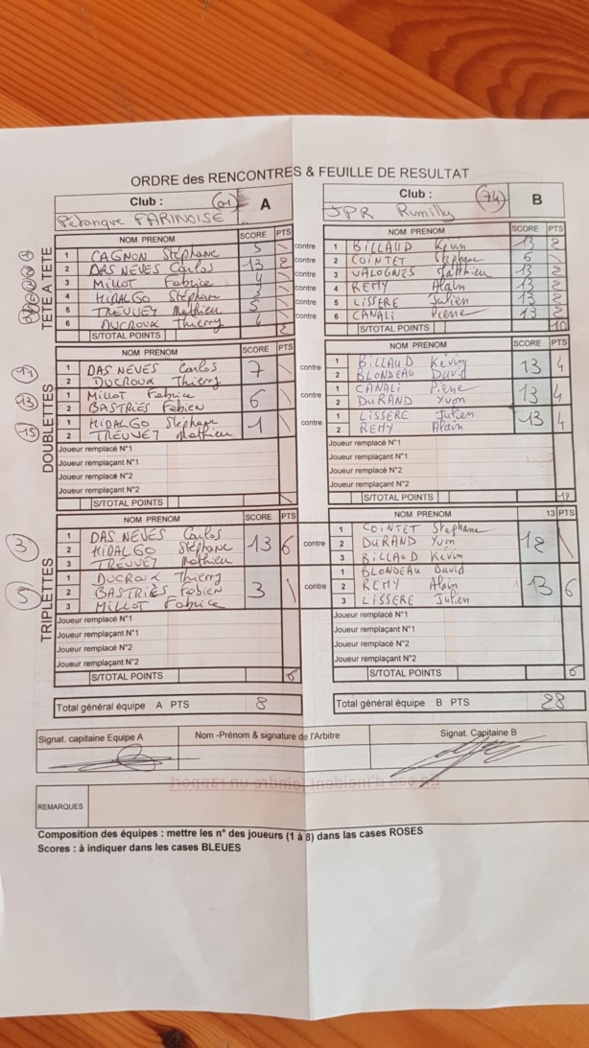 ORDRE des RENCONTRES & FEUILLE DE RESULTAT
Club : (01) A
Pétanque FARINOISE
Club : (74) B
JPR Rumilly
TÊTE A TÊTE
NOM PRENOM SCORE PTS
1 CAGNON Stéphane 5
2 DAS NEVES Carlos 13 2
3 MILLOT Fabrice 4
4 HIDALGO Stéphane
5 TREUVEY Mathieu 5
6 DUCROUX Thierry
S/TOTAL POINTS 2
contre
contre
contre
contre
contre
contre
NOM PRENOM SCORE PTS
1 BILLAUD 13 2
2 COINTET Stéphane 6
3 VALOGNES Matthieu 13 2
4 REMY Alain 13 2
5 LISSERE Julien 13 2
6 CANALI Pierre 13 2
S/TOTAL POINTS 10
DOUBLETTES
NOM PRENOM SCORE PTS
1 DAS NEVES Carlos 7
2 DUCROUX Thierry
1 MILLOT Fabrice 6
2 BASTRIES Fabien
1 HIDALGO Stéphane 1
2 TREUVEY Mathieu
Joueur remplacé N°1
Joueur remplaçant N°1
Joueur remplacé N°2
Joueur remplaçant N°2
S/TOTAL POINTS
contre
contre
contre
NOM PRENOM SCORE PTS
1 BILLAUD Kévin 13 4
2 BLONDEAU David
1 CANALI Pierre 13 4
2 DURAND Yvon
1 LISSERE Julien 13 4
2 REMY Alain
S/TOTAL POINTS 12
TRIPLETTES
3
NOM PRENOM SCORE PTS
1 DAS NEVES Carlos
2 HIDALGO Stéphane 13 6
3 TREUVEY Mathieu
1 DUCROUX Thierry
2 BASTRIES Fabien 3
3 MILLOT Fabrice
Joueur remplacé N°1
Joueur remplaçant N°1
Joueur remplacé N°2
Joueur remplaçant N°2
S/TOTAL POINTS 6
contre
contre
NOM PRENOM 13 PTS
1 COINTET Stéphane
2 DURAND Yvon 12
3 BILLAUD Kevin
1 BLONDEAU David
2 REMY Alain 13 6
3 LISSERE Julien
Joueur remplacé N°1
Joueur remplaçant N°1
Joueur remplacé N°2
Joueur remplaçant N°2
S/TOTAL POINTS 6
Total général équipe A PTS 8
Total général équipe B PTS 28
Signat. capitaine Equipe A
Nom -Prénom & signature de l'Arbitre
Signat. Capitaine B
REMARQUES
Composition des équipes : mettre les n° des joueurs (1 à 8) dans las cases ROSES
Scores : à indiquer dans les cases BLEUES